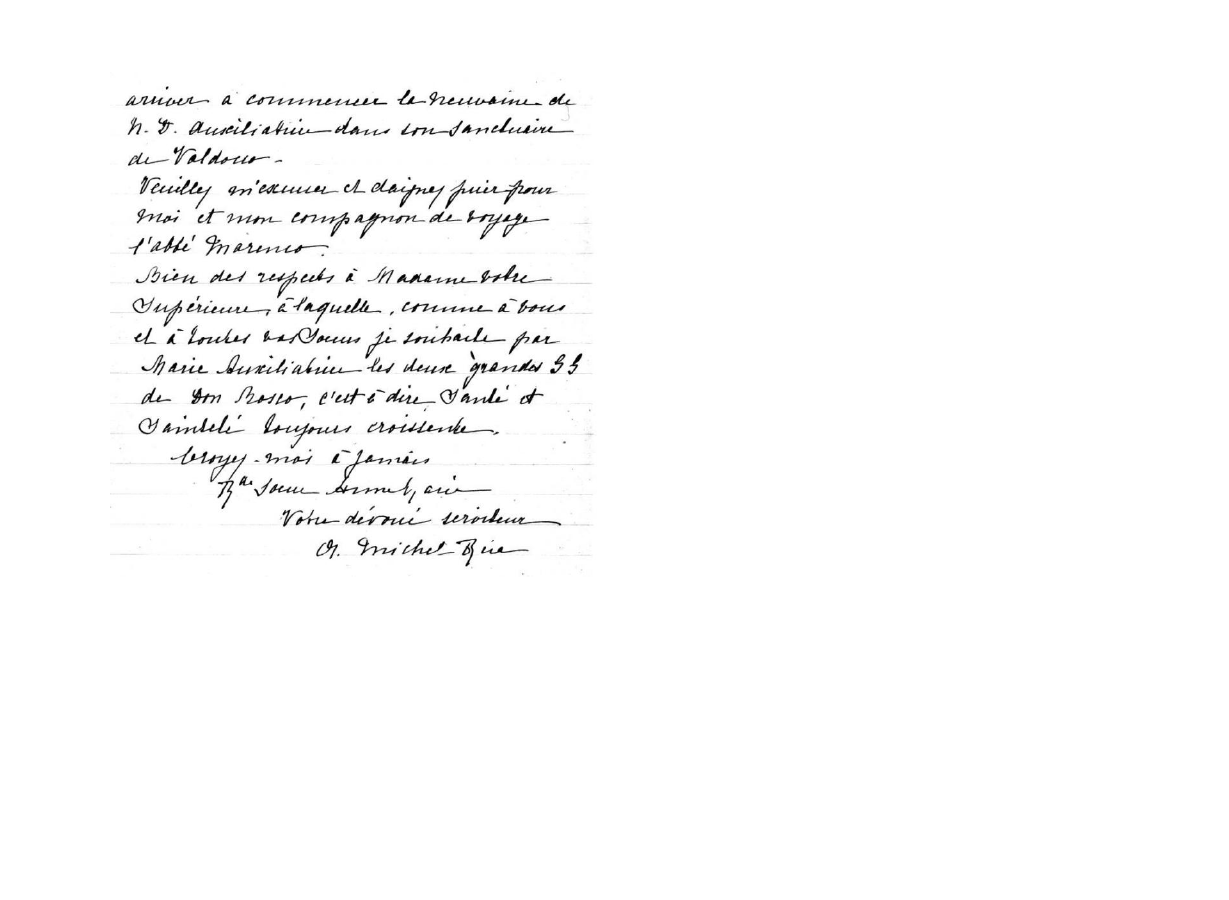 arriver à commencer la neuvaine de
N. D. Auxiliatrice dans son Sanctuaire
de Valdocco -
Veuillez m'excuser et daignez prier pour
moi et mon compagnon de voyage
l'abbé Marenco.
Bien des respects à Madame votre
Supérieure, à laquelle, comme à vous
et à toutes vos Soeurs je souhaite par
Marie Auxiliatrice les deux grandes SS
de Don Bosco, c'est à dire Santé et
Sainteté toujours croissente.
Croyez-moi à jamais
Rde Soeur
Votre dévoué serviteur
Michel Rua